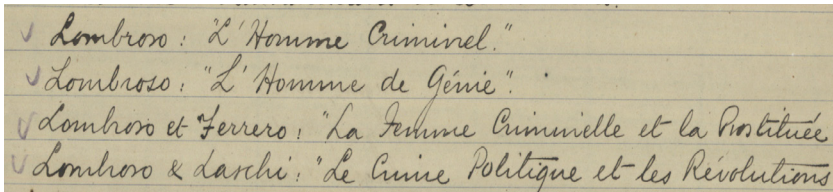 Lombroso: "L'Homme Criminel."
Lombroso: "L'Homme de Génie".
Lombroso et Ferrero: "La Femme Criminelle et la Prostituée
Lombroso & Laschi: "Le Crime Politique et les Révolutions